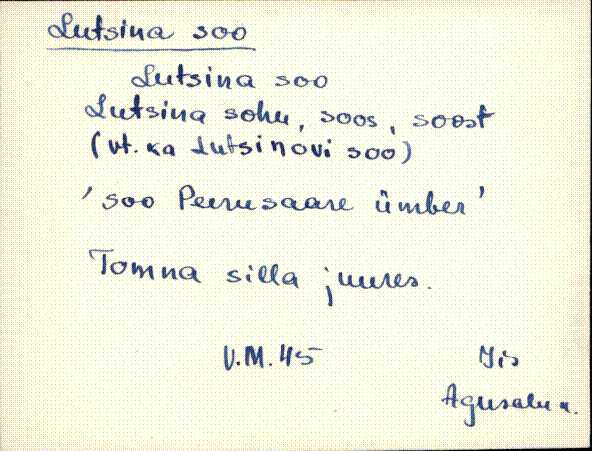 Lutsina soo
Lutsina soo
Lutsina sohu, soos, soost
(vt. ka Lutsinovi soo)
'soo Peerusaare ümber'
Tomna silla juures.
V.M. 45
Iis
Agusalu k.